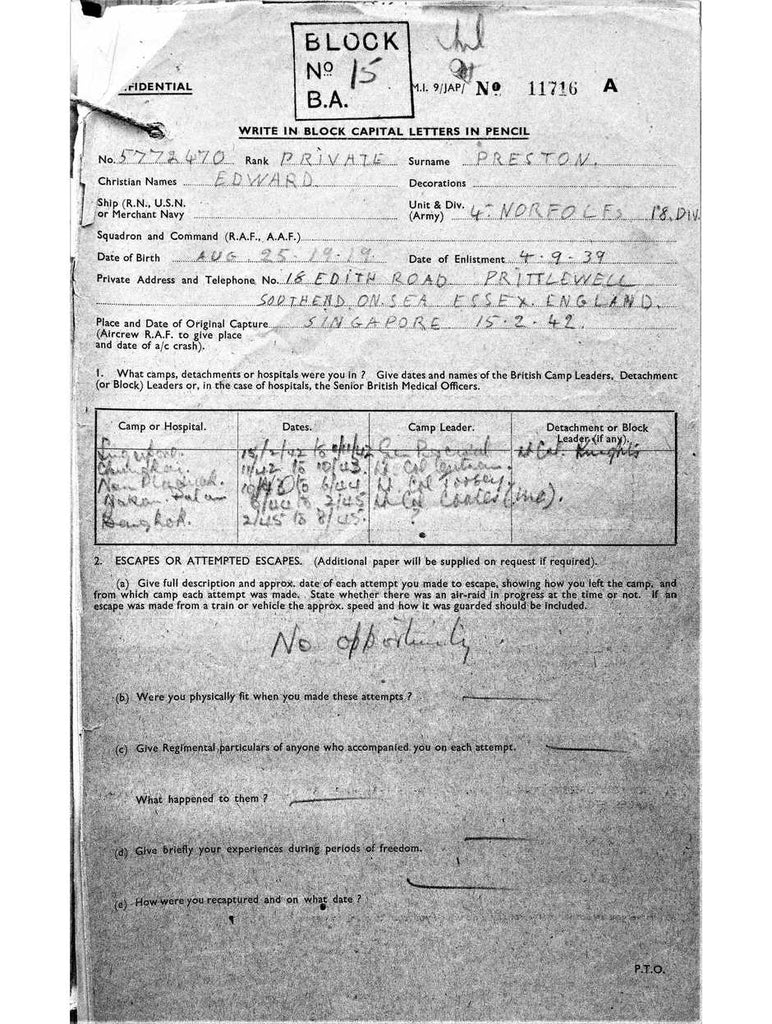 BLOCK
Nº 15
B.A.
FIDENTIAL
M.I. 9/JAP/ Nº 11716 A
WRITE IN BLOCK CAPITAL LETTERS IN PENCIL
No. 5772470 Rank PRIVATE Surname PRESTON.
Christian Names EDWARD Decorations
Ship (R.N., U.S.N. or Merchant Navy Unit & Div. (Army) 4TH NORFOLKS 18. DIV.
Squadron and Command (R.A.F., A.A.F.)
Date of Birth AUG. 25. 1919 Date of Enlistment 4.9.39
Private Address and Telephone No. 18 EDITH ROAD PRITTLEWELL
SOUTHEND. ON. SEA ESSEX. ENGLAND.
Place and Date of Original Capture SINGAPORE 15.2.42.
(Aircrew R.A.F. to give place
and date of a/c crash).
1. What camps, detachments or hospitals were you in ? Give dates and names of the British Camp Leaders, Detachment
(or Block) Leaders or, in the case of hospitals, the Senior British Medical Officers.
Camp or Hospital. Dates. Camp Leader. Detachment or Block
Leader (if any).
Singapore. 15/2/42 to Gen Percival Lt Col. Knights
Chungkai. 11/42 to 10/43. Lt Col
10/43 to 6/44 Lt Col Toosey.
Nakon 6/44 to 2/45 Lt Col Coates
Bangkok. 2/45 to 8/45. ?
2. ESCAPES OR ATTEMPTED ESCAPES. (Additional paper will be supplied on request if required).
(a) Give full description and approx. date of each attempt you made to escape, showing how you left the camp, and
from which camp each attempt was made. State whether there was an air-raid in progress at the time or not. If an
escape was made from a train or vehicle the approx. speed and how it was guarded should be included.
No opportunity.
(b) Were you physically fit when you made these attempts ?
(c) Give Regimental particulars of anyone who accompanied you on each attempt.
What happened to them ?
(d) Give briefly your experiences during periods of freedom.
(e) How were you recaptured and on what date ?
P.T.O.